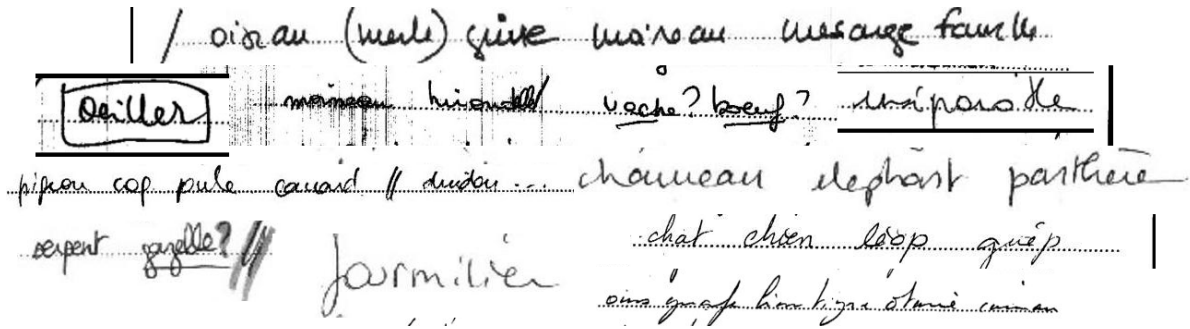 / oiseau (merle) grive moineau mésange
oeillet moineau hirondelle vache? boeuf?
pigeon coq pule canard // dindon...
chauneau elephant panthère
serpent gazelle? //
fourmilier
chat chien loop guêp
ours girafe lion tigre otarie caiman